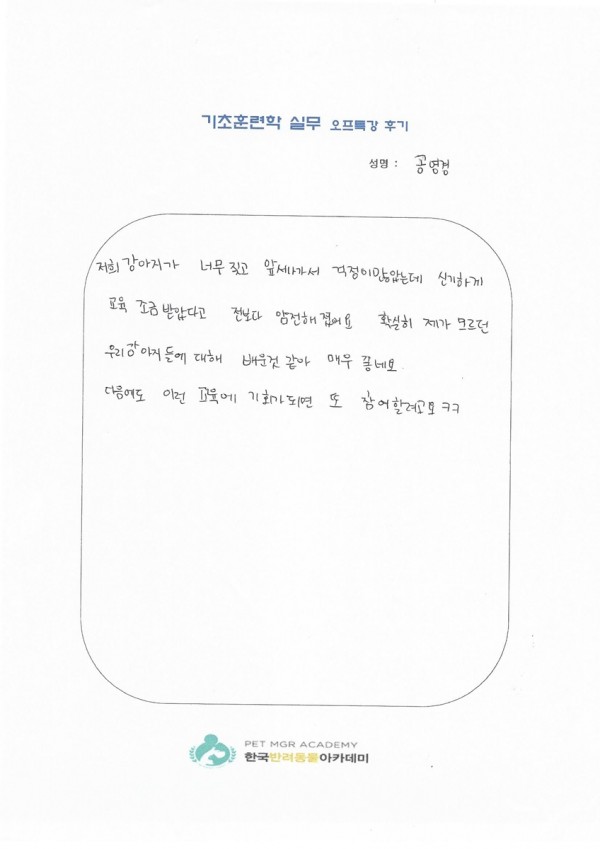 기초훈련학 실무 오프특강 후기
성명 : 공영경
저희 강아지가 너무 짖고 앞세나가서 걱정이많았는데 신기하게
교육 조금 받았다고 전보다 얌전해 졌어요 확실히 제가 모르던
우리강아지들에 대해 배운것 같아 매우 좋네요
다음에도 이런 교육에 기회가되면 또 참여할려고요 ㅋㅋ
PET MGR ACADEMY
한국반려동물아카데미